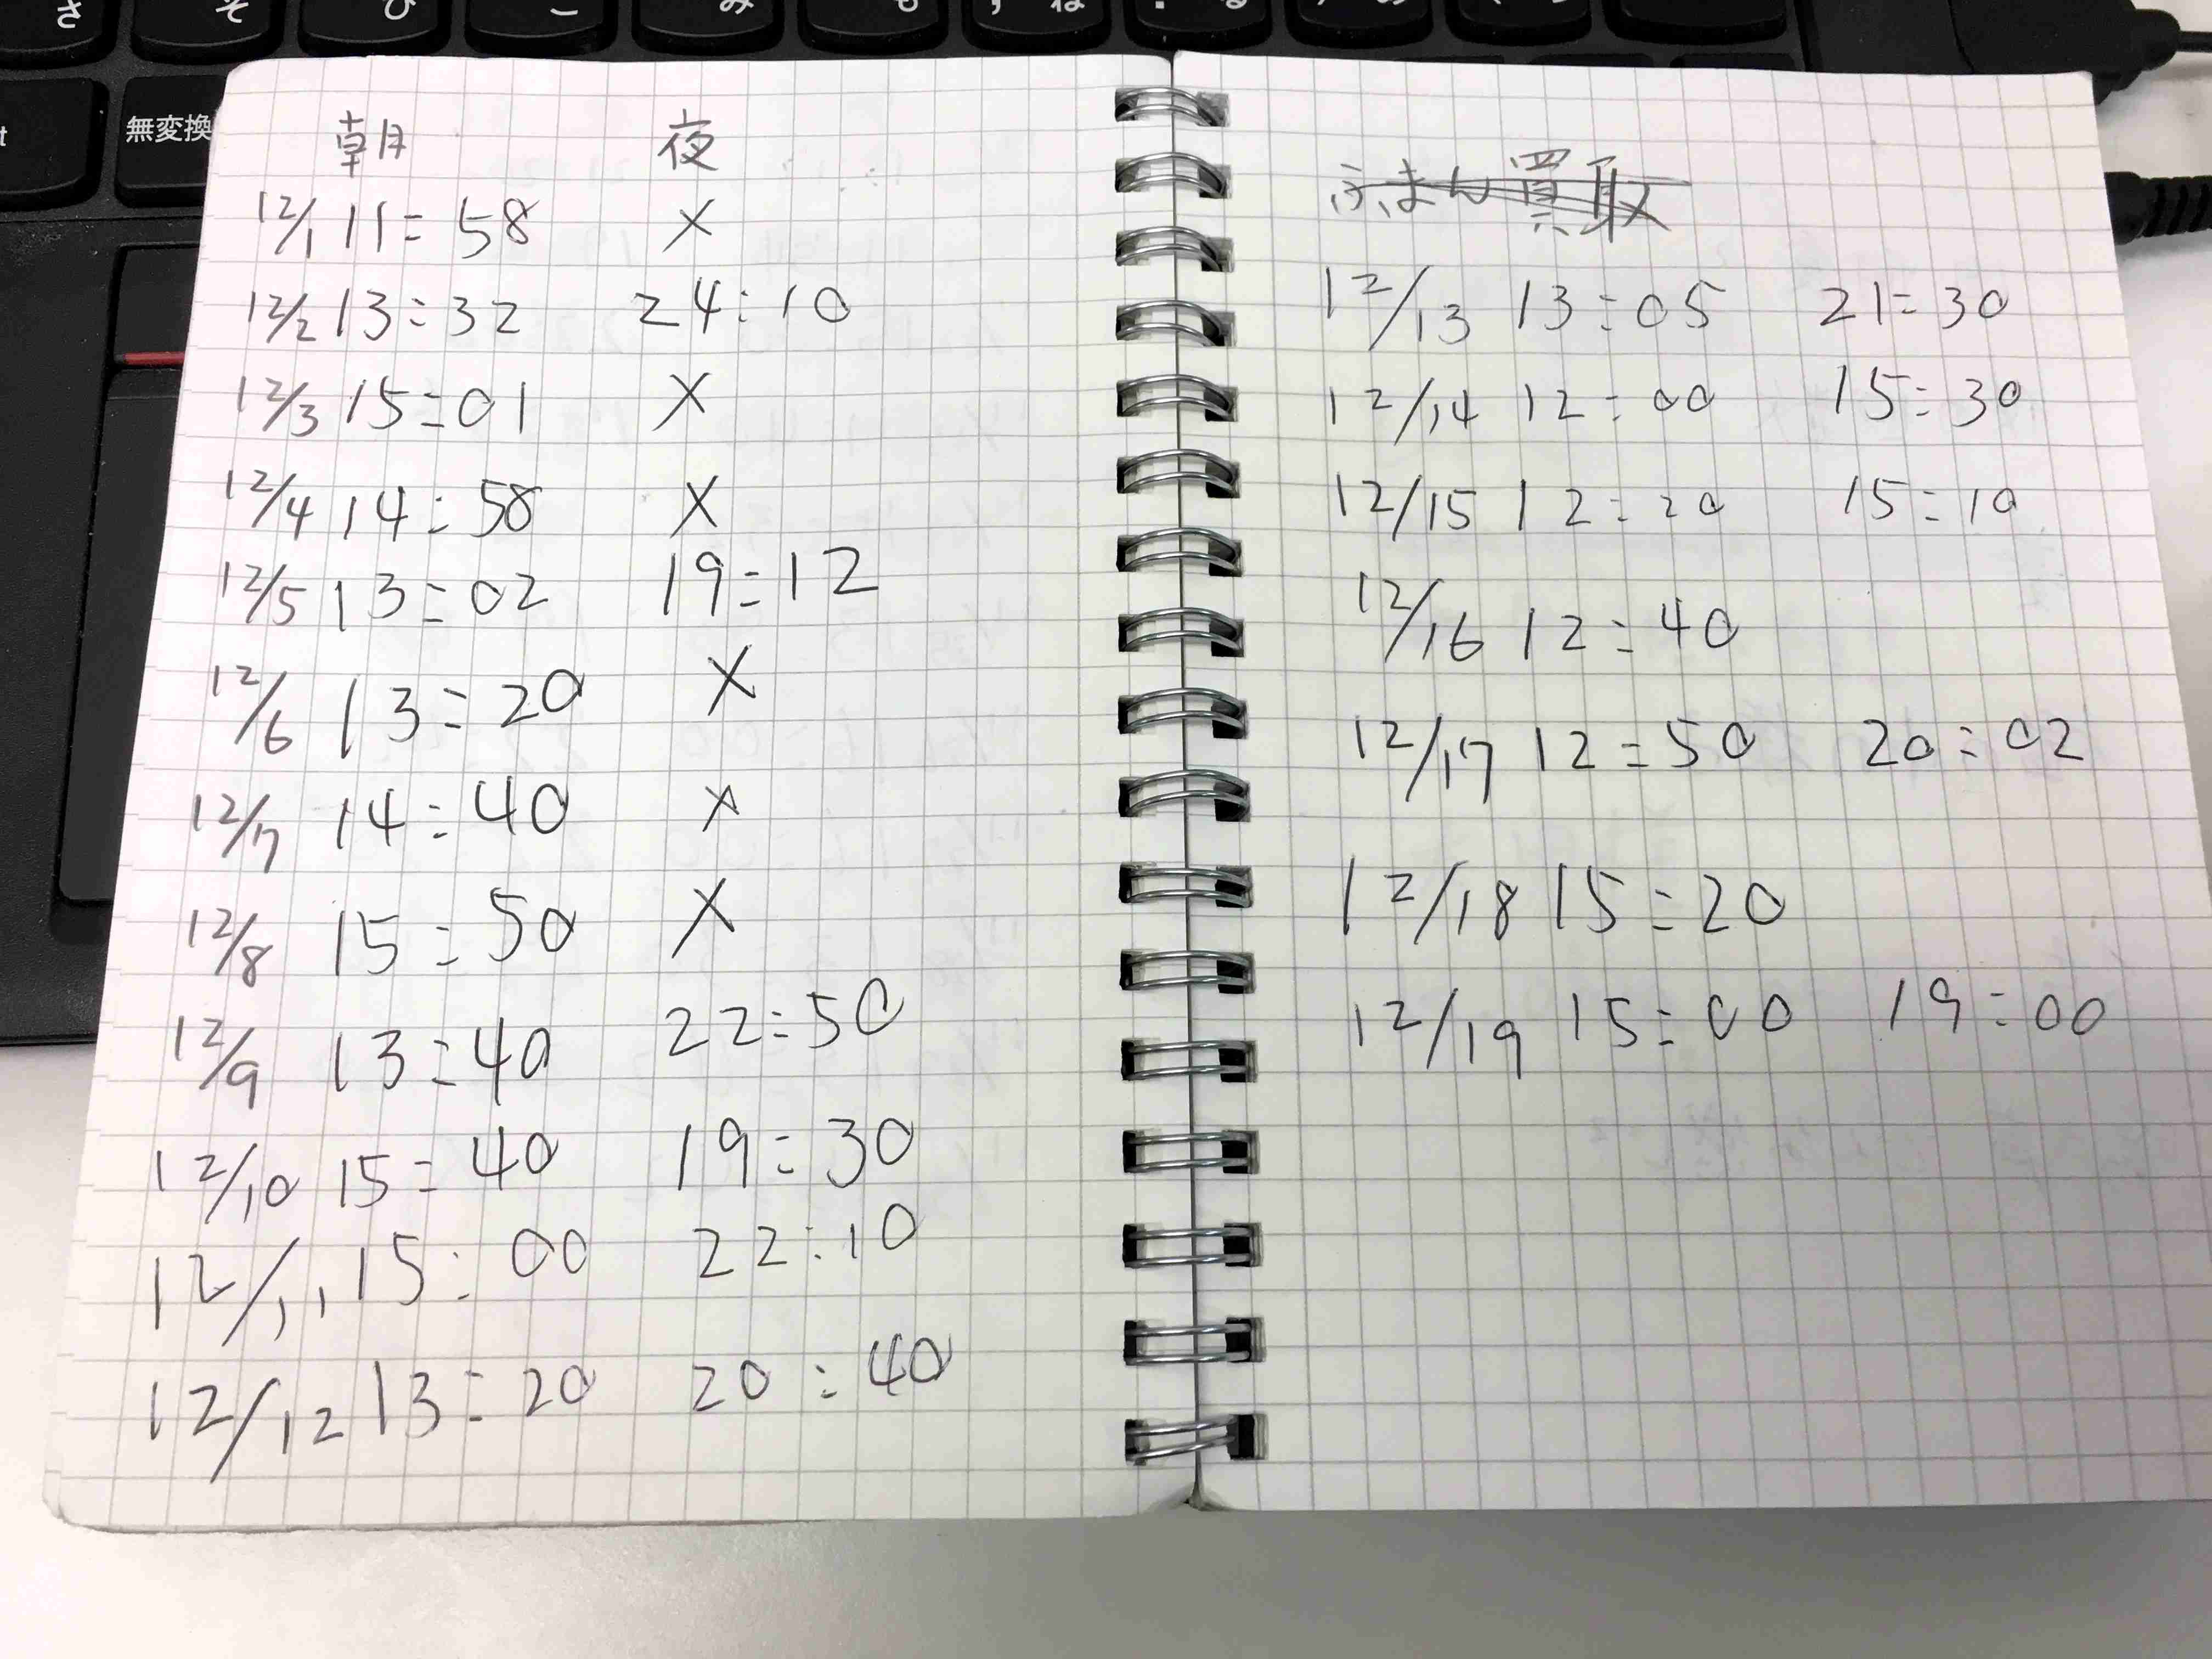 さ そ ひ こ み も
無変換
朝 夜
12/1 11:58 ×
12/2 13:32 24:10
12/3 15:01 ×
12/4 14:58 ×
12/5 13:02 19:12
12/6 13:20 ×
12/7 14:40 ×
12/8 15:50 ×
12/9 13:40 22:50
12/10 15:40 19:30
12/11 15:00 22:10
12/12 13:20 20:40
ふまん買取
12/13 13:05 21:30
12/14 12:00 15:30
12/15 12:20 15:10
12/16 12:40
12/17 12:50 20:02
12/18 15:20
12/19 15:00 19:00